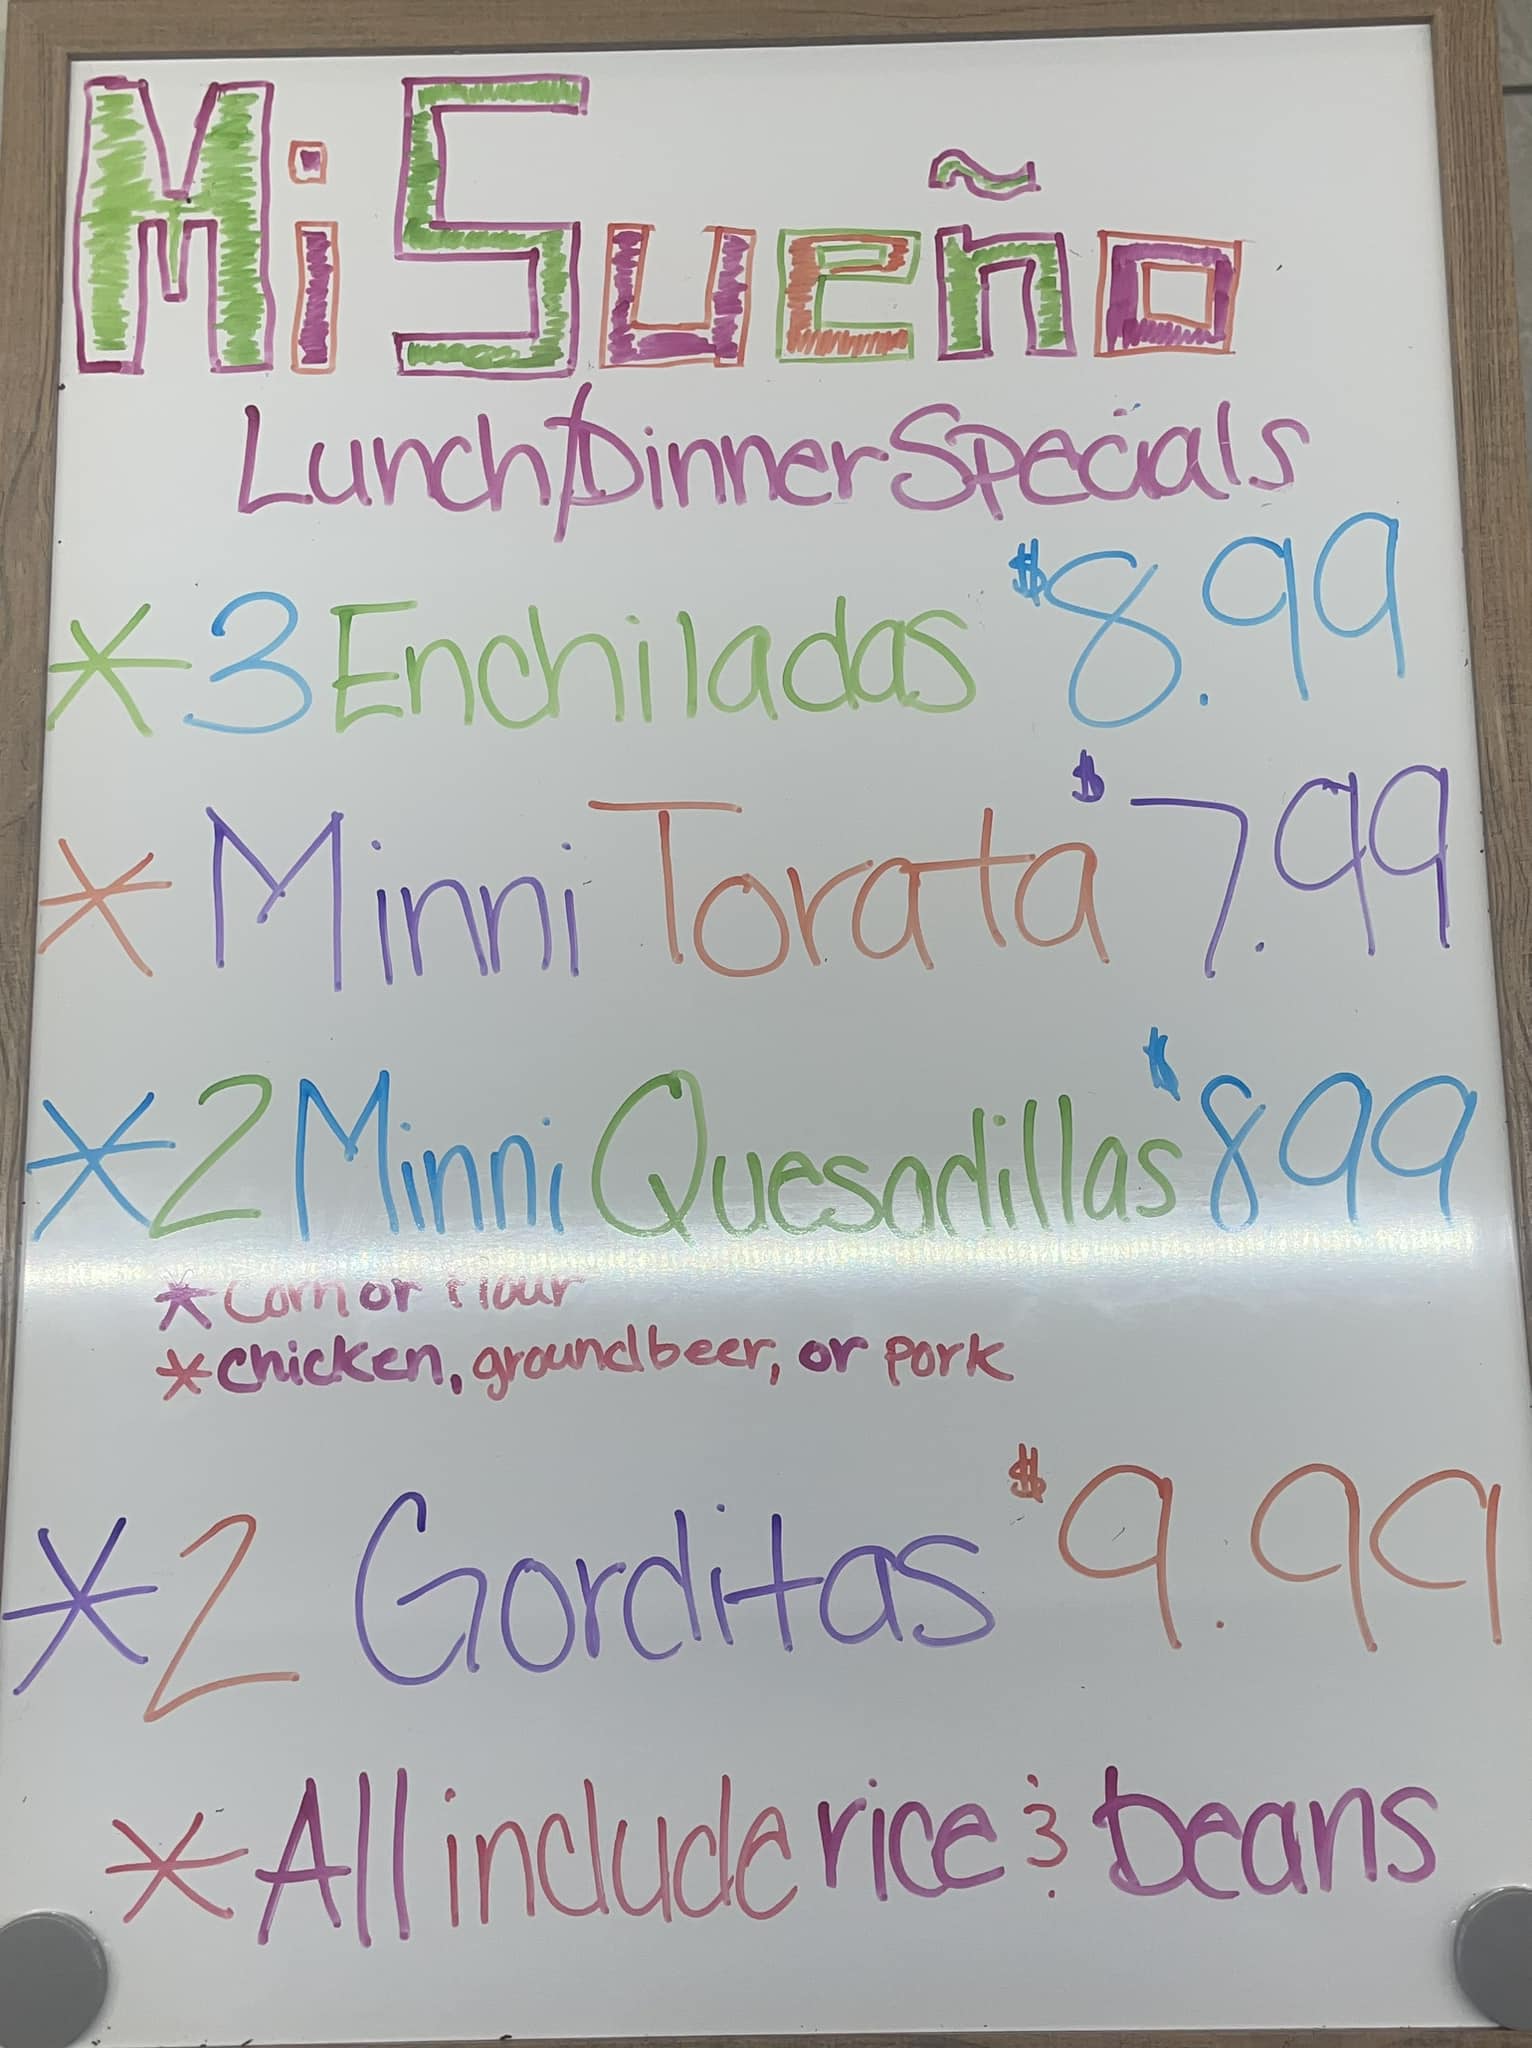 Mi Sueño
Lunch/Dinner Specials
* 3 Enchiladas $8.99
* Minni Torata $7.99
* 2 Minni Quesadillas $899
* Corn or Flour
* chicken, ground beer, or pork
* 2 Gorditas $9.99
* All include rice & beans